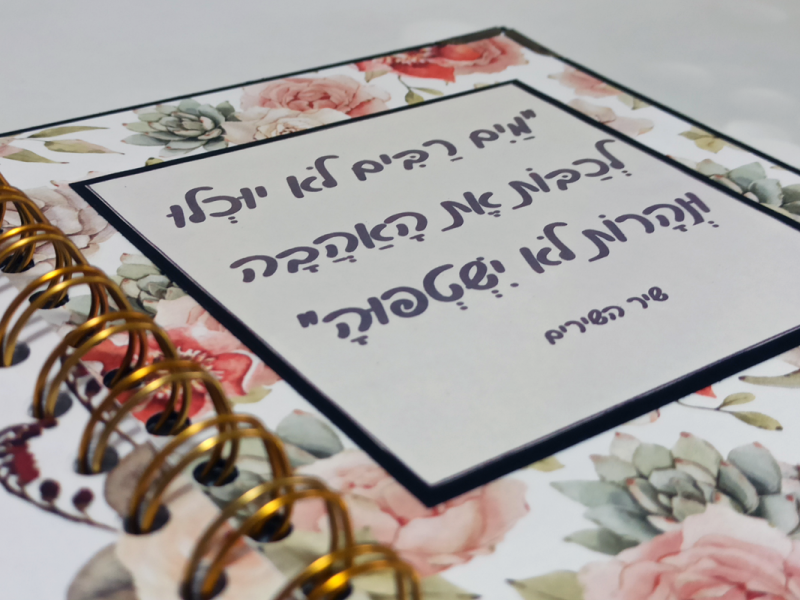 "מַיִם רַבִּים לֹא יוּכְלוּ
לְכַבּוֹת אֶת הָאַהֲבָה
וּנְהָרוֹת לֹא יִשְׁטְפוּהָ"
שיר השירים